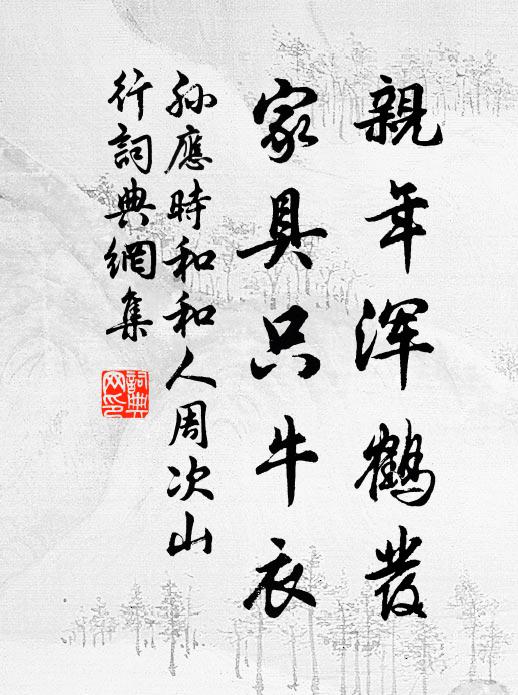 親年渾鶴發
家具只牛衣
孫應時和和人周次山
行詞典網集
詞典
网印